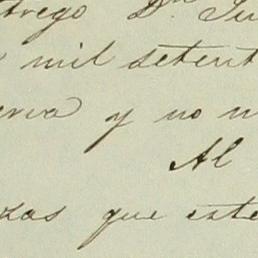 trego Dn Ju
mil setent
erva y no n
Al
zas que este